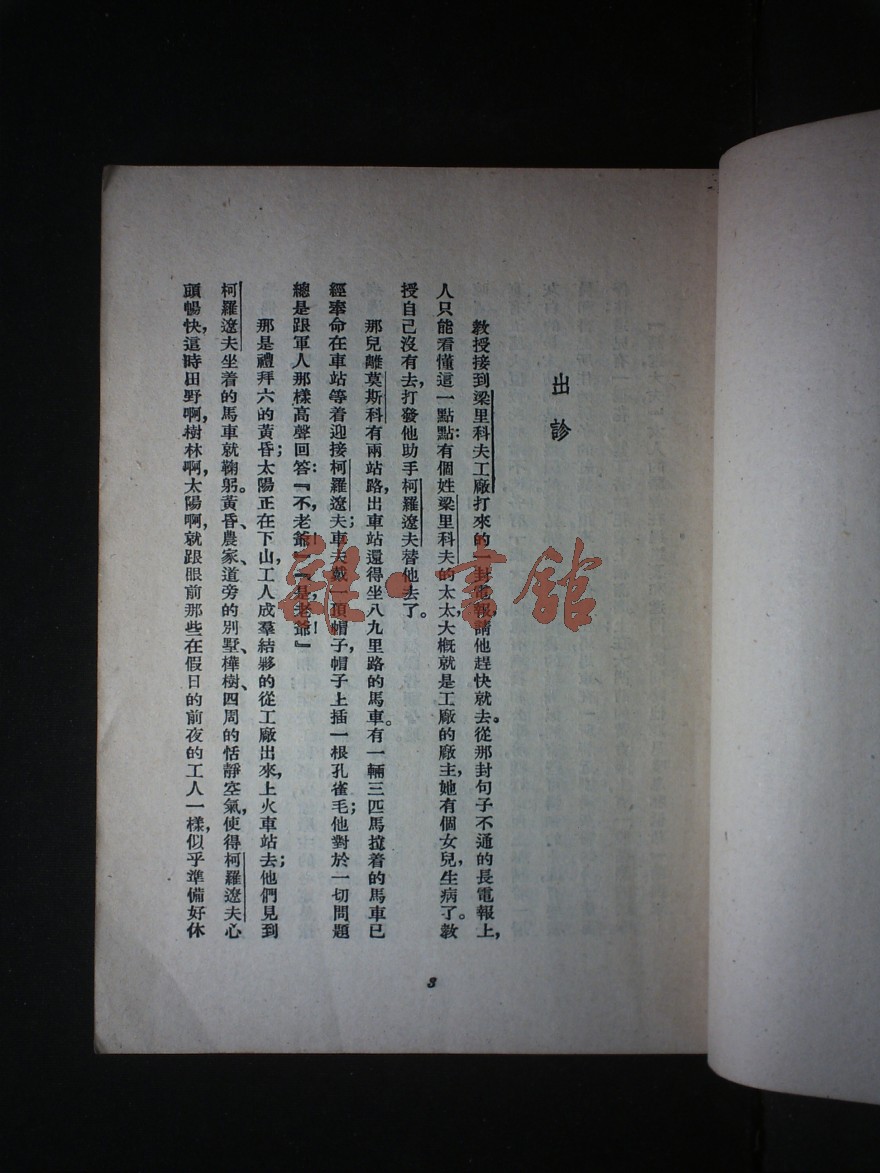 出診
教授接到梁里科夫工廠打來的一封電報，請他趕快就去。從那封句子不通的長電報上，
人只能看懂這一點點：有個姓梁里科夫的太太，大概就是工廠的廠主，她有個女兒，生病了。教
授自己沒有去，打發他助手柯羅遼夫替他去了。
那兒離莫斯科有兩站路，出車站還得坐八九里路的馬車。有一輛三匹馬拉着的馬車已
經奉命在車站等着迎接柯羅遼夫；車夫戴一頂帽子，帽子上插一根孔雀毛；他對於一切問題
總是跟軍人那樣高聲回答：『不，老爺！』『是，老爺！』
那是禮拜六的黃昏；太陽正在下山，工人成羣結夥的從工廠出來，上火車站去；他們見到
柯羅遼夫坐着的馬車就鞠躬。黃昏、農家、道旁的別墅、樺樹、四周的恬靜空氣，使得柯羅遼夫心
頭暢快，這時田野啊，樹林啊，太陽啊，就跟眼前那些在假日的前夜的工人一樣，似乎準備好休
3
雜·書館